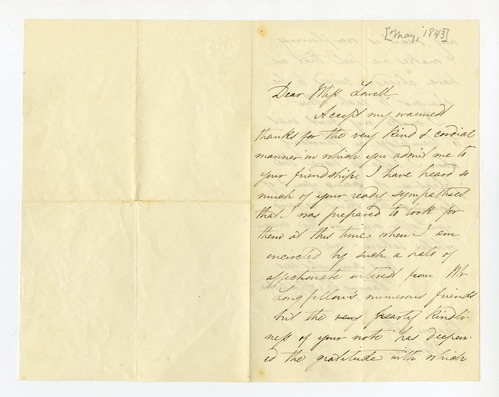 [May, 1843]
Dear Miss Lowell,
Accept my warmest
thanks for the very kind & cordial
manner in which you admit me to
your friendship. I have heard so
much of your ready sympathies
that I was prepared to look for
them at this time when I am
encircled by such a halo of
affectionate interest from Mr
Longfellow's numerous friends
but the very hearty kind-
ness of your note has deepen-
ed the gratitude with which